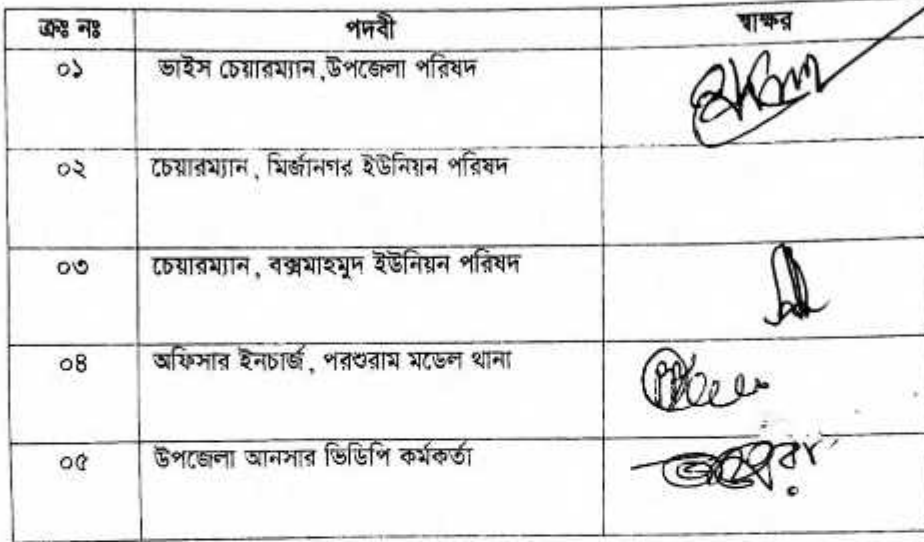 ক্রঃ নঃ পদবী স্বাক্ষর
০১ ভাইস চেয়ারম্যান,উপজেলা পরিষদ
০২ চেয়ারম্যান, মির্জানগর ইউনিয়ন পরিষদ
০৩ চেয়ারম্যান, বক্সমাহমুদ ইউনিয়ন পরিষদ
০৪ অফিসার ইনচার্জ, পরশুরাম মডেল থানা
০৫ উপজেলা আনসার ভিডিপি কর্মকর্তা